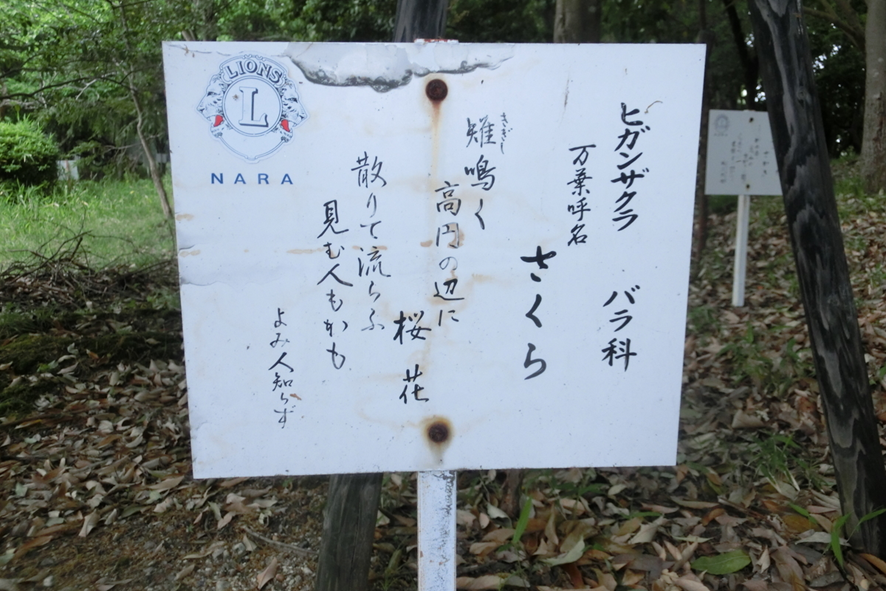 ヒガンザクラ バラ科
万葉呼名
さくら
きぎし
雉鳴く
高円の辺に
桜花
散りて流らふ
見む人もがも
よみ人知らず
LIONS
L
NARA